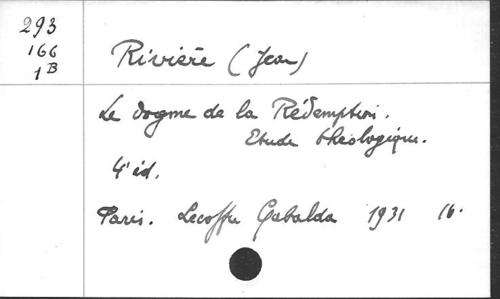 293
166
1 B
Rivière (Jean)
Le dogme de la Rédemption.
Etude théologique.
4e éd.
Paris. Lecoffre Gabalda 1931 16.